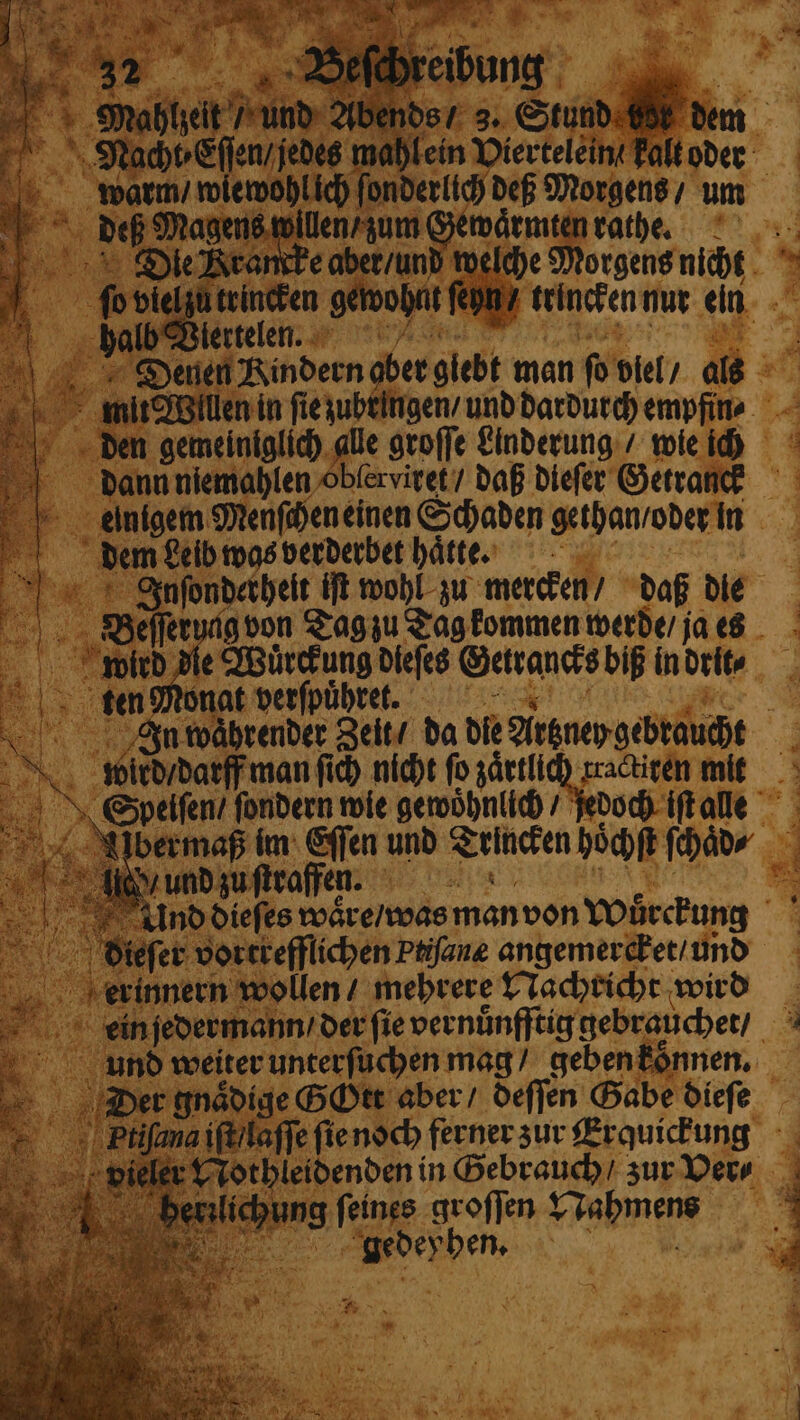 32 Beſchreibung
Mahlzeit / und Abends / 3. Stund vor dem
Nacht-Eſſen / jedes mahl ein Viertelein / kalt oder
warm / wiewohl ich ſonderlich deß Morgens / um
deß Magens willen / zum Gewaͤrmten rathe.
Die Krancke aber / und welche Morgens nicht
ſo viel zu trincken gewohnt ſeyn / trincken nur ein
halb Viertelen.
Denen Kindern aber giebt man ſo viel / als
mit Willen in ſie zubringen / und dardurch empfin-
den gemeiniglich alle groſſe Linderung / wie ich
dann niemahlen obſerviret / daß dieſer Getranck
einigem Menſchen einen Schaden gethan / oder in
dem Leib was verderbet haͤtte.
Inſonderheit iſt wohl zu mercken / daß die
Beſſerung von Tag zu Tag kommen werde / ja es
wird die Wuͤrckung dieſes Getrancks biß in drit-
ten Monat verſpuͤhret.
In waͤhrender Zeit / da die Artzney gebraucht
wird / darff man ſich nicht ſo zaͤrtlich tractiren mit
Speiſen / ſondern wie gewoͤhnlich / jedoch iſt alle
Ubermaß im Eſſen und Trincken hoͤchſt ſchaͤd-
lich / und zu ſtraffen.
Und dieſes waͤre / was man von Wuͤrckung
dieſer vortrefflichen Ptiſanæ angemercket / und
erinnern wollen / mehrere Nachricht wird
ein jedermann / der ſie vernuͤnfftig gebrauchet /
und weiter unterſuchen mag / geben koͤnnen.
Der gnaͤdige GOtt aber / deſſen Gabe dieſe
Ptiſana iſt / laſſe ſie noch ferner zur Erquickung
vieler Nothleidenden in Gebrauch / zur Ver-
herꝛlichung ſeines groſſen Nahmens
gedeyhen.